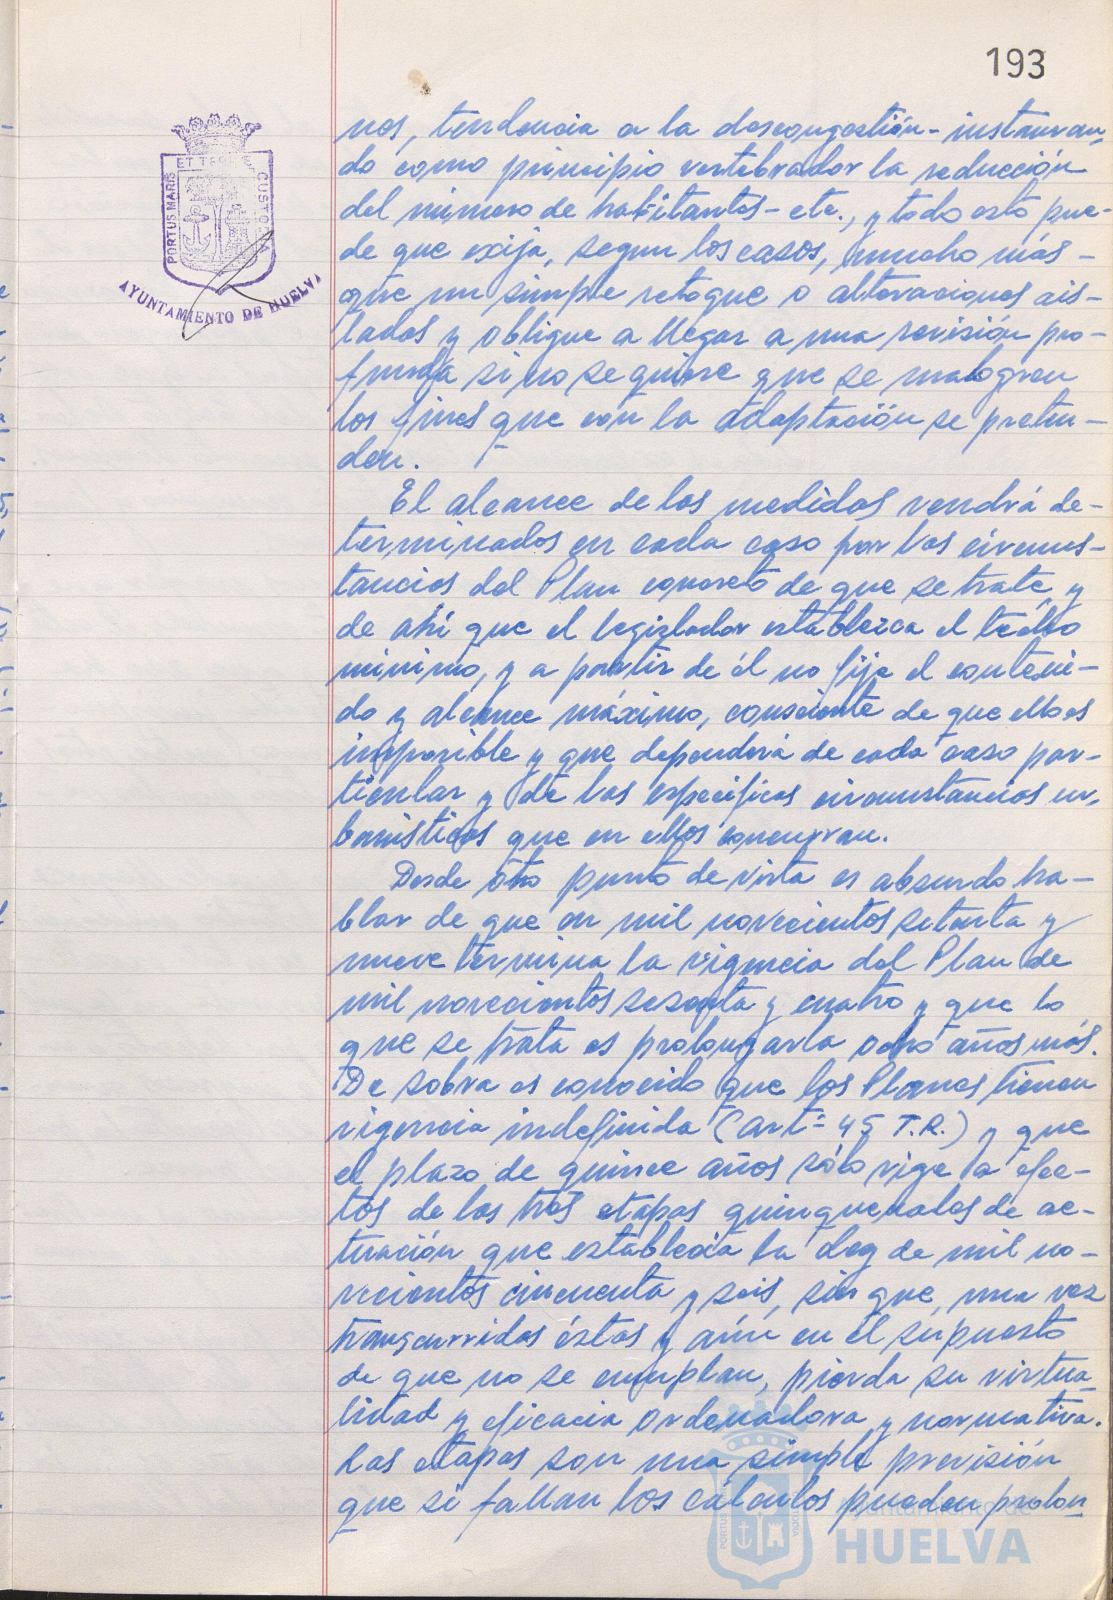 193
PORTUS MARIS ET TERRE CUSTODIA
AYUNTAMIENTO DE HUELVA
nos, tendencia a la descongestión - instauran-
do como principio vertebrador la reducción
del número de habitantes - etc., y todo esto pue-
de que exija, segun los casos, mucho más -
que un simple retoque o alteraciones ais-
ladas y obligue a llegar a una revisión pro-
funda si no se quiere que se malogren
los fines que con la adaptación se preten-
den.
El alcance de las medidas vendrá de-
terminados en cada caso por las circuns-
tancias del Plan concreto de que se trate, y
de ahí que el legislador establezca el techo
mínimo, y a partir de él no fije el conteni-
do y alcance máximo, consciente de que ello es
imposible y que dependerá de cada caso par-
ticular y de las específicas circunstancias ur-
banísticas que en ellos concurran.
Desde otro punto de vista es absurdo ha-
blar de que en mil novecientos setenta y
nueve termina la vigencia del Plan de
mil novecientos sesenta y cuatro y que lo
que se trata es prolongarla ocho años más.
De sobra es conocido que los Planes tienen
vigencia indefinida (artº 45 T.R.) y que
el plazo de quince años sólo rige a efec-
tos de las tres etapas quinquenales de ac-
tuación que establecía la Ley de mil no-
vecientos cincuenta y seis, sin que, una vez
transcurridas éstas y aún en el supuesto
de que no se cumplan, pierda su virtua-
lidad y eficacia ordenadora y normativa.
Las etapas son una simple previsión
que si fallan los cálculos pueden prolon
Ayuntamiento de
HUELVA